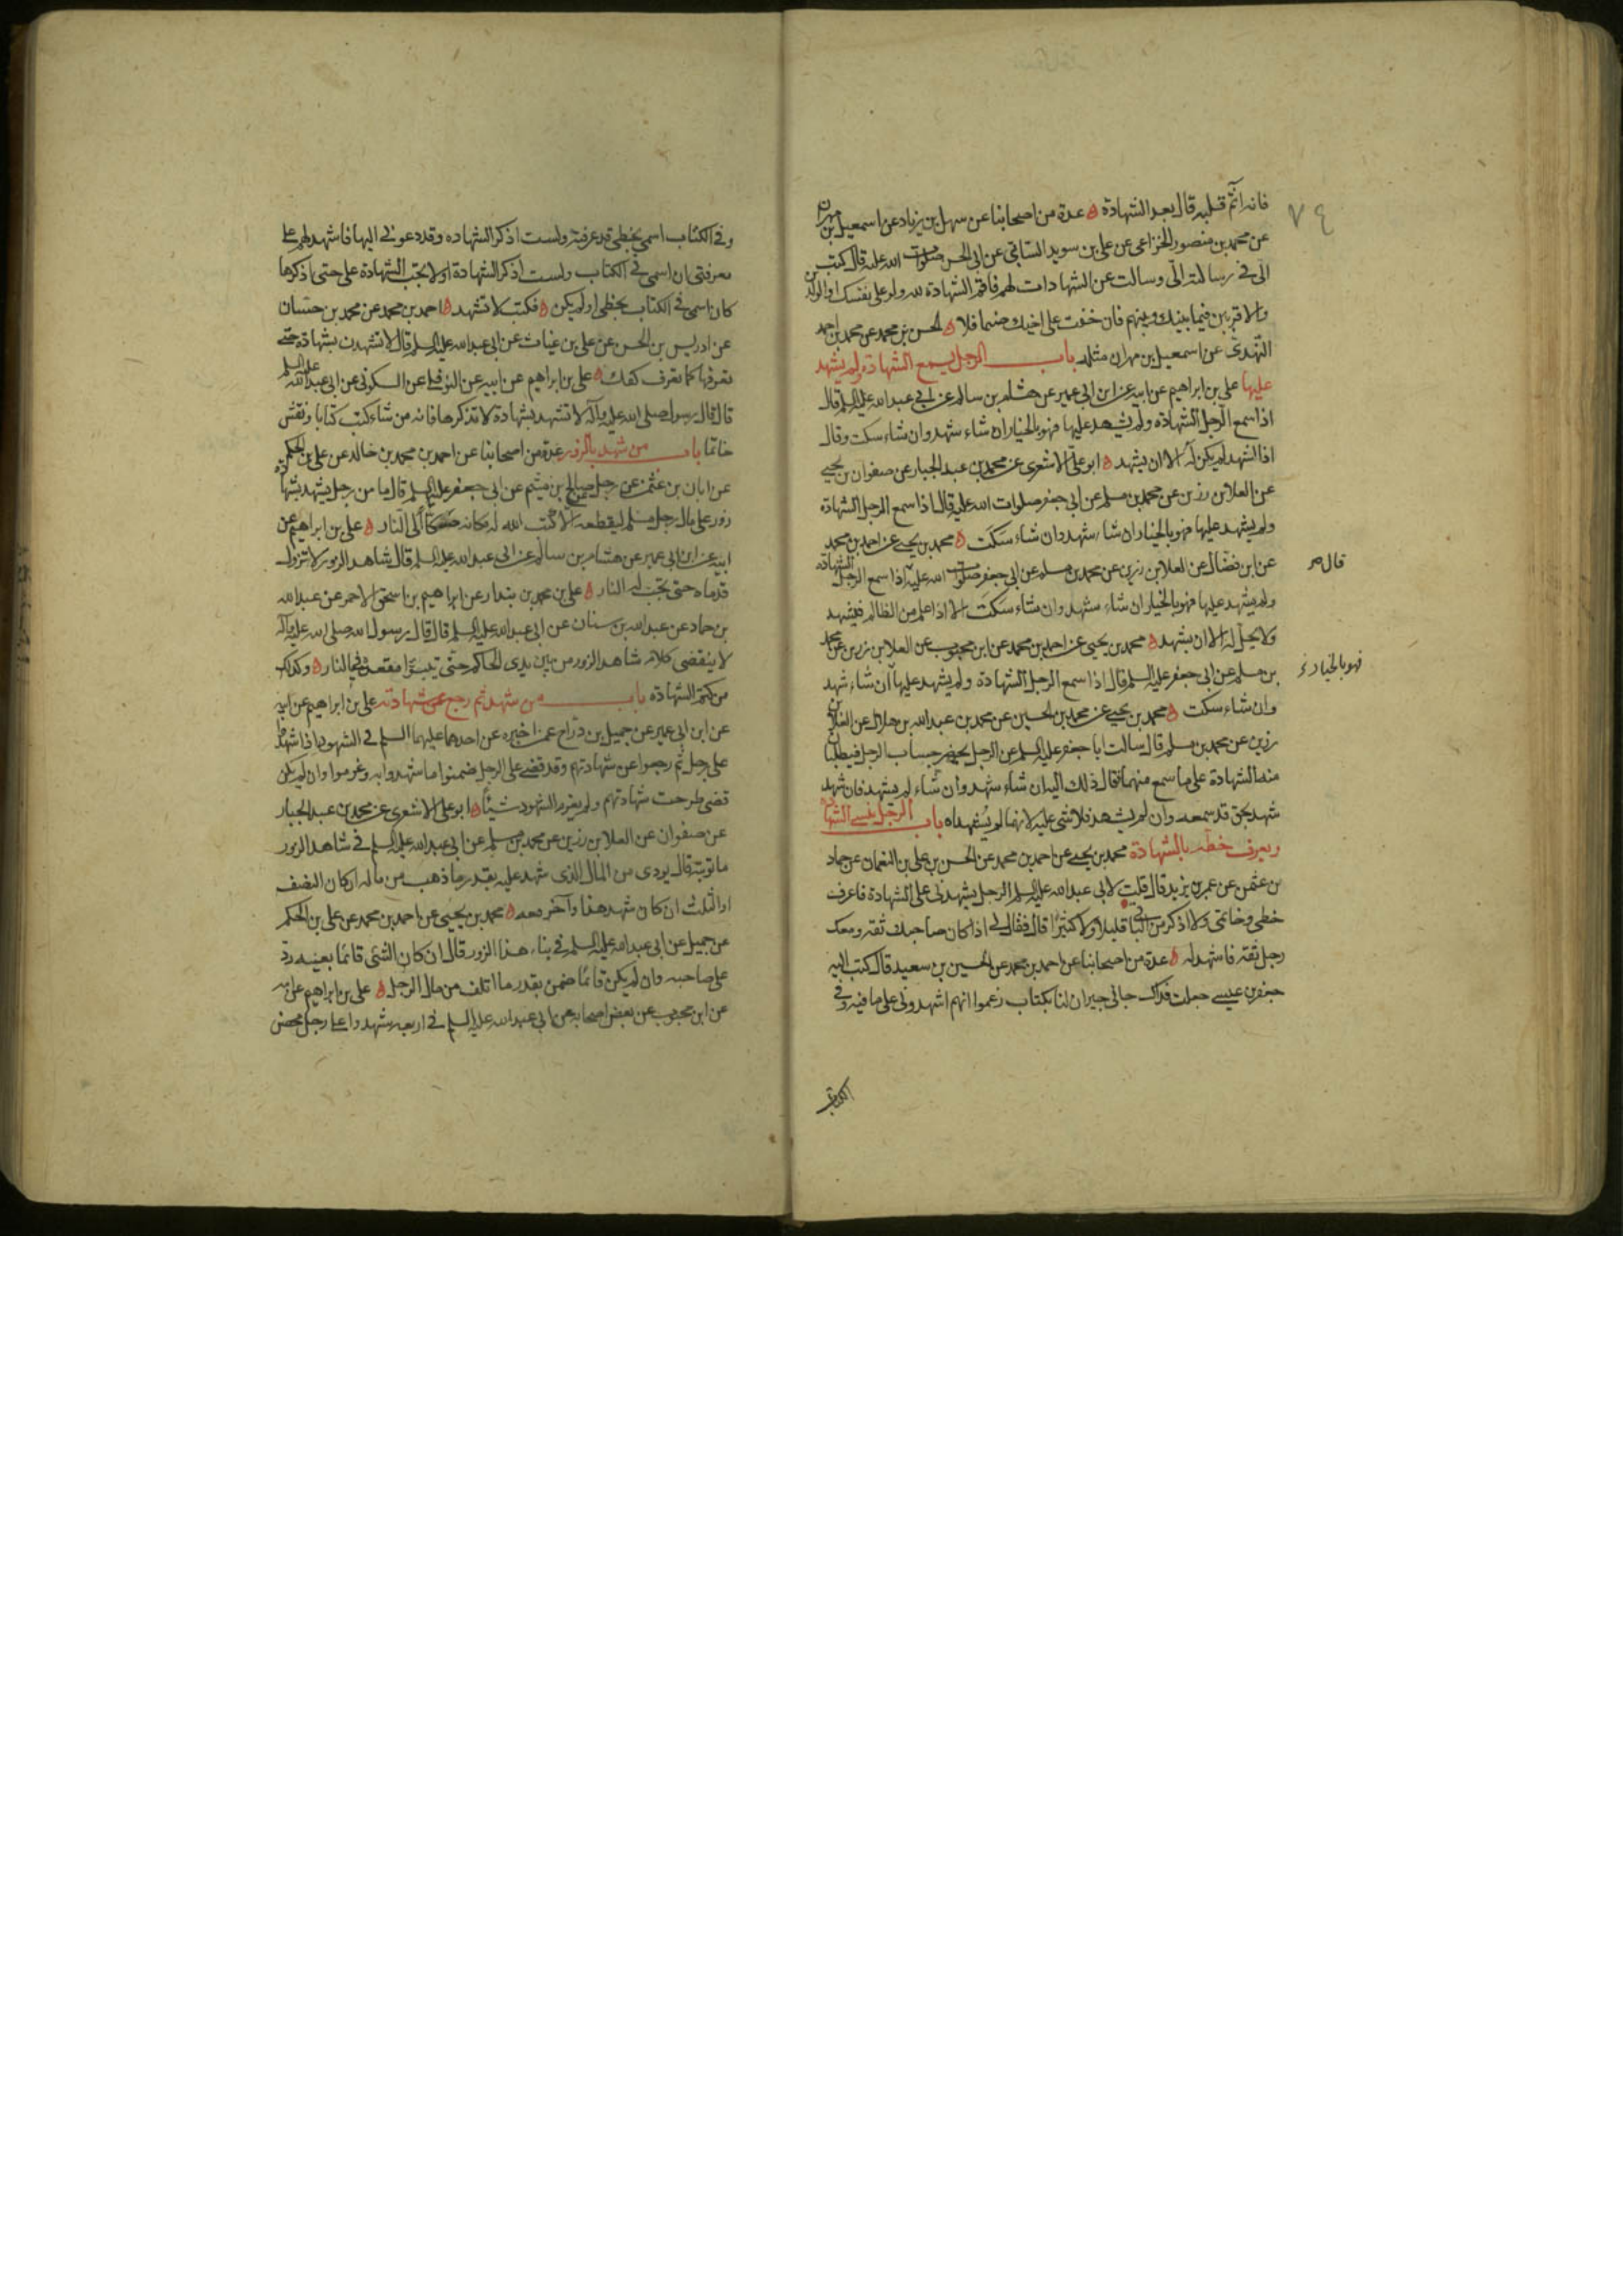 فانه اثم قلبه قال بعد الشهادة ه عدة من اصحابنا عن سهل بن زياد عن اسمعيل بن مهران
عن محمد بن منصور الخزاعى عن على بن سويد السائى عن ابى الحسن صلوات الله عليه قال كتب
الىّ فى رسالته الىّ وسالت عن الشهادات لهم فاقم الشهادة لله ولو على نفسك او الوالدين
والاقربين فيما بينك وبينهم فان خفت على اخيك ضيما فلا ه الحسن بن محمد عن محمد بن احمد
النّهدىّ عن اسمعيل بن مهران مثله باب الرجل يسمع الشهادة ولم يشهد
عليها على بن ابراهيم عن ابيه عن ابن ابى عمير عن هشام بن سالم عن ابى عبد الله عليه السلم قال
اذا سمع الرجل الشهادة ولم يشهد عليها فهو بالخيار ان شاء شهد وان شاء سكت وقال
اذا اشهد لم يكن له الا ان يشهد ه ابو علىّ الاشعرى عن محمد بن عبد الجبار عن صفوان بن يحيى
عن العلا بن رزين عن محمد بن مسلم عن ابى جعفر صلوات الله عليه قال اذا سمع الرجل الشهادة
ولم يشهد عليها فهو بالخيار ان شاء شهد وان شاء سكت ه محمد بن يحيى عن احمد بن محمد
عن ابن فضّال عن العلا بن رزين عن محمد بن مسلم عن ابى جعفر صلوات الله عليه اذا سمع الرجل الشهادة
قال صح
ولم يشهد عليها فهو بالخيار ان شاء شهد وان شاء سكت الا اذا علم من الظالم فيشهد
ولا يحلّ له الا ان يشهد ه محمد بن يحيى عن احمد بن محمد عن ابن محبوب عن العلا بن رزين عن محمد
بن مسلم عن ابى جعفر عليه السلم قال اذا سمع الرجل الشهادة ولم يشهد عليها ان شاء شهد
فهو بالخيار
وان شاء سكت ه محمد بن يحيى عن محمد بن الحسين عن محمد بن عبد الله بن هلال عن العلا بن
رزين عن محمد بن مسلم قال سالت ابا جعفر عليه السلم عن الرجل يحضر حساب الرجل فيطلبان
منه الشهادة على ما سمع منهما فقال ذلك اليه ان شاء شهد وان شاء لم يشهد فان شهد
شهد بحق قد سمعه وان لم يشهد فلا شى عليه لانهما لم يشهداه باب الرجل ينسى الشهادة
ويعرف خطّه بالشهادة محمد بن يحيى عن احمد بن محمد عن الحسن بن على بن النعمان عن حماد
بن عثمن عن عمر بن يزيد قال قلت لابى عبد الله عليه السلم الرجل يشهدنى على الشهادة فاعرف
خطى وخاتمى ولا اذكر من الباقى قليلا ولا كثيرا قال فقال لى اذا كان صاحبك ثقه ومعك
رجل ثقه فاشهد له ه عدة من اصحابنا عن احمد بن محمد عن الحسين بن سعيد قال كتب اليه
جعفر بن عيسى جعلت فداك جانى جيران لنا بكتاب زعموا انهم اشهدونى على ما فيه وفى
الكتاب
وفى الكتاب اسمى بخطى قد عرفته ولست اذكر الشهاده وقد دعونى اليها فاشهد لهم على
معرفتى ان اسمى فى الكتاب ولست اذكر الشهادة او لا تجب الشهادة على حتى اذكرها
كان اسمى فى الكتاب بخطى او لم يكن ه فكتب لا تشهد ه احمد بن محمد عن محمد بن حسّان
عن ادريس بن الحسن عن على بن غياث عن ابى عبد الله عليه السلم قال لا تشهدن بشهادة حتى
تعرفها كما تعرف كفك ه على بن ابراهيم عن ابيه عن النوفلى عن السكونى عن ابى عبد الله عليه السلم
قال قال رسول صلى الله عليه وآله لا تشهد بشهادة لا تذكرها فانه من شاء كتب كتابا ونقش
خاتما باب من شهد بالزور عدة من اصحابنا عن احمد بن محمد بن خالد عن على بن الحكم
عن ابان بن عثمن عن رجل صالح بن ميثم عن ابى جعفر عليه السلم قال ما من رجل يشهد بشهادة
زور على مال رجل مسلم ليقطعه الا كتب الله له مكانه صكّا الى النار ه على بن ابراهيم عن
ابيه عن ابن ابى عمير عن هشام بن سالم عن ابى عبد الله عليه السلم قال شاهد الزور لا تزول
قدماه حتى تجب له النار ه على بن محمد بن بندار عن ابراهيم بن اسحق الاحمر عن عبد الله
بن حماد عن عبد الله بن سنان عن ابى عبد الله عليه السلم قال قال رسول الله صلى الله عليه وآله
لا ينقضى كلام شاهد الزور من بين يدى الحاكم حتى يتبوّا مقعده فى النار ه وكذلك
من كتم الشهادة باب من شهد ثم رجع عن شهادته على بن ابراهيم عن ابيه
عن ابن ابى عمير عن جميل بن درّاج عمن اخبره عن احدهما عليهما السلم فى الشهود اذا شهدوا
على رجل ثم رجعوا عن شهادتهم وقد قضى على الرجل ضمنوا ما شهدوا به وغرموا وان لم يكن
قضى طرحت شهادتهم ولم يغرم الشهود شيئاً ه ابو على الاشعرى عن محمد بن عبد الجبار
عن صفوان عن العلا بن رزين عن محمد بن مسلم عن ابى عبد الله عليه السلم فى شاهد الزور
ما توبته قال يودى من المال الذى شهد عليه بقدر ما ذهب من ماله ان كان النصف
او الثلث ان كان شهد هذا وآخر معه ه محمد بن يحيى عن احمد بن محمد عن على بن الحكم
عن جميل عن ابى عبد الله عليه السلم فى هذا الزور قال ان كان الشئى قائما بعينه ردّ
على صاحبه وان لم يكن قائمًا ضمن بقدر ما اتلف من مال الرجل ه على بن ابراهيم عن ابيه
عن ابن محبوب عن بعض اصحابه عن ابى عبد الله عليه السلم فى اربعه شهدوا على رجل محصن